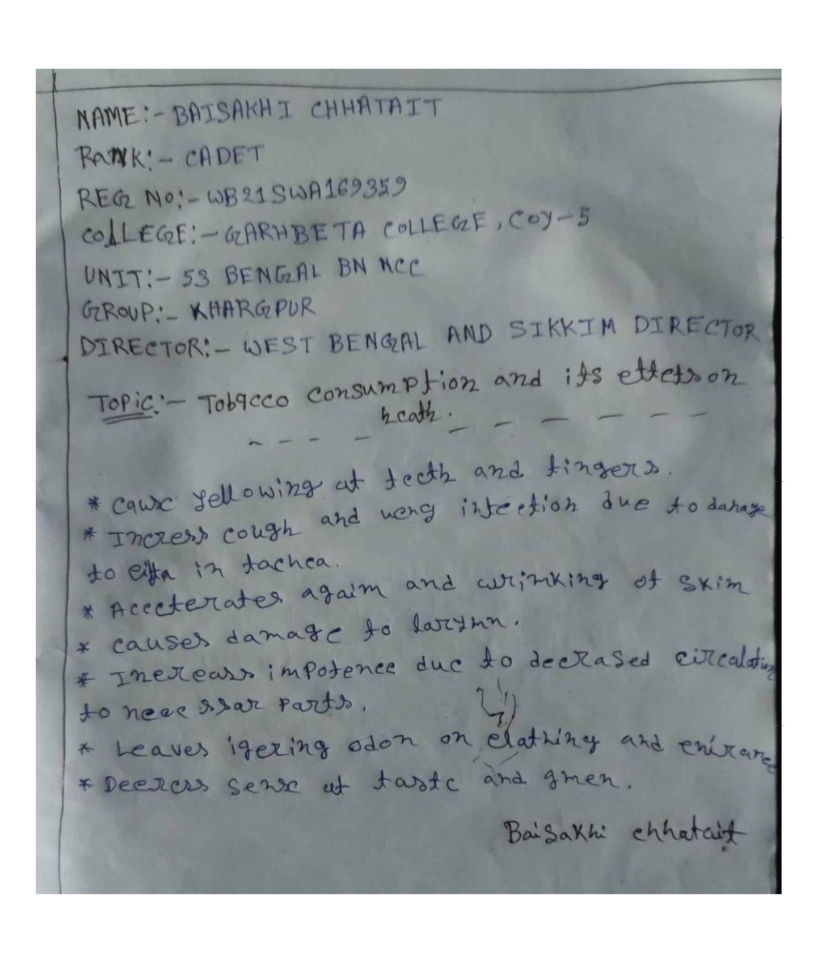 NAME:- BAISAKHI CHHATAIT
RANK:- CADET
REG NO:- WB21SWA169359
COLLEGE:- GARHBETA COLLEGE, COY-5
UNIT:- 53 BENGAL BN NCC
GROUP:- KHARGPUR
DIRECTOR:- WEST BENGAL AND SIKKIM DIRECTOR
TOPIC:- Tobacco consumption and its effets on
heath.
* Cause yellowing at teeth and fingers.
* Incress cough and infection due to damage
to in tachea.
* Accecterates agaim and wrimking of skim
* causes damage to larymn.
* Inereass impotence due to decrased circalating
to neecssar parts.
* Leaves igering odon on elathing and
* Deercss sense at taste and gmen.
Baisakhi chhatait